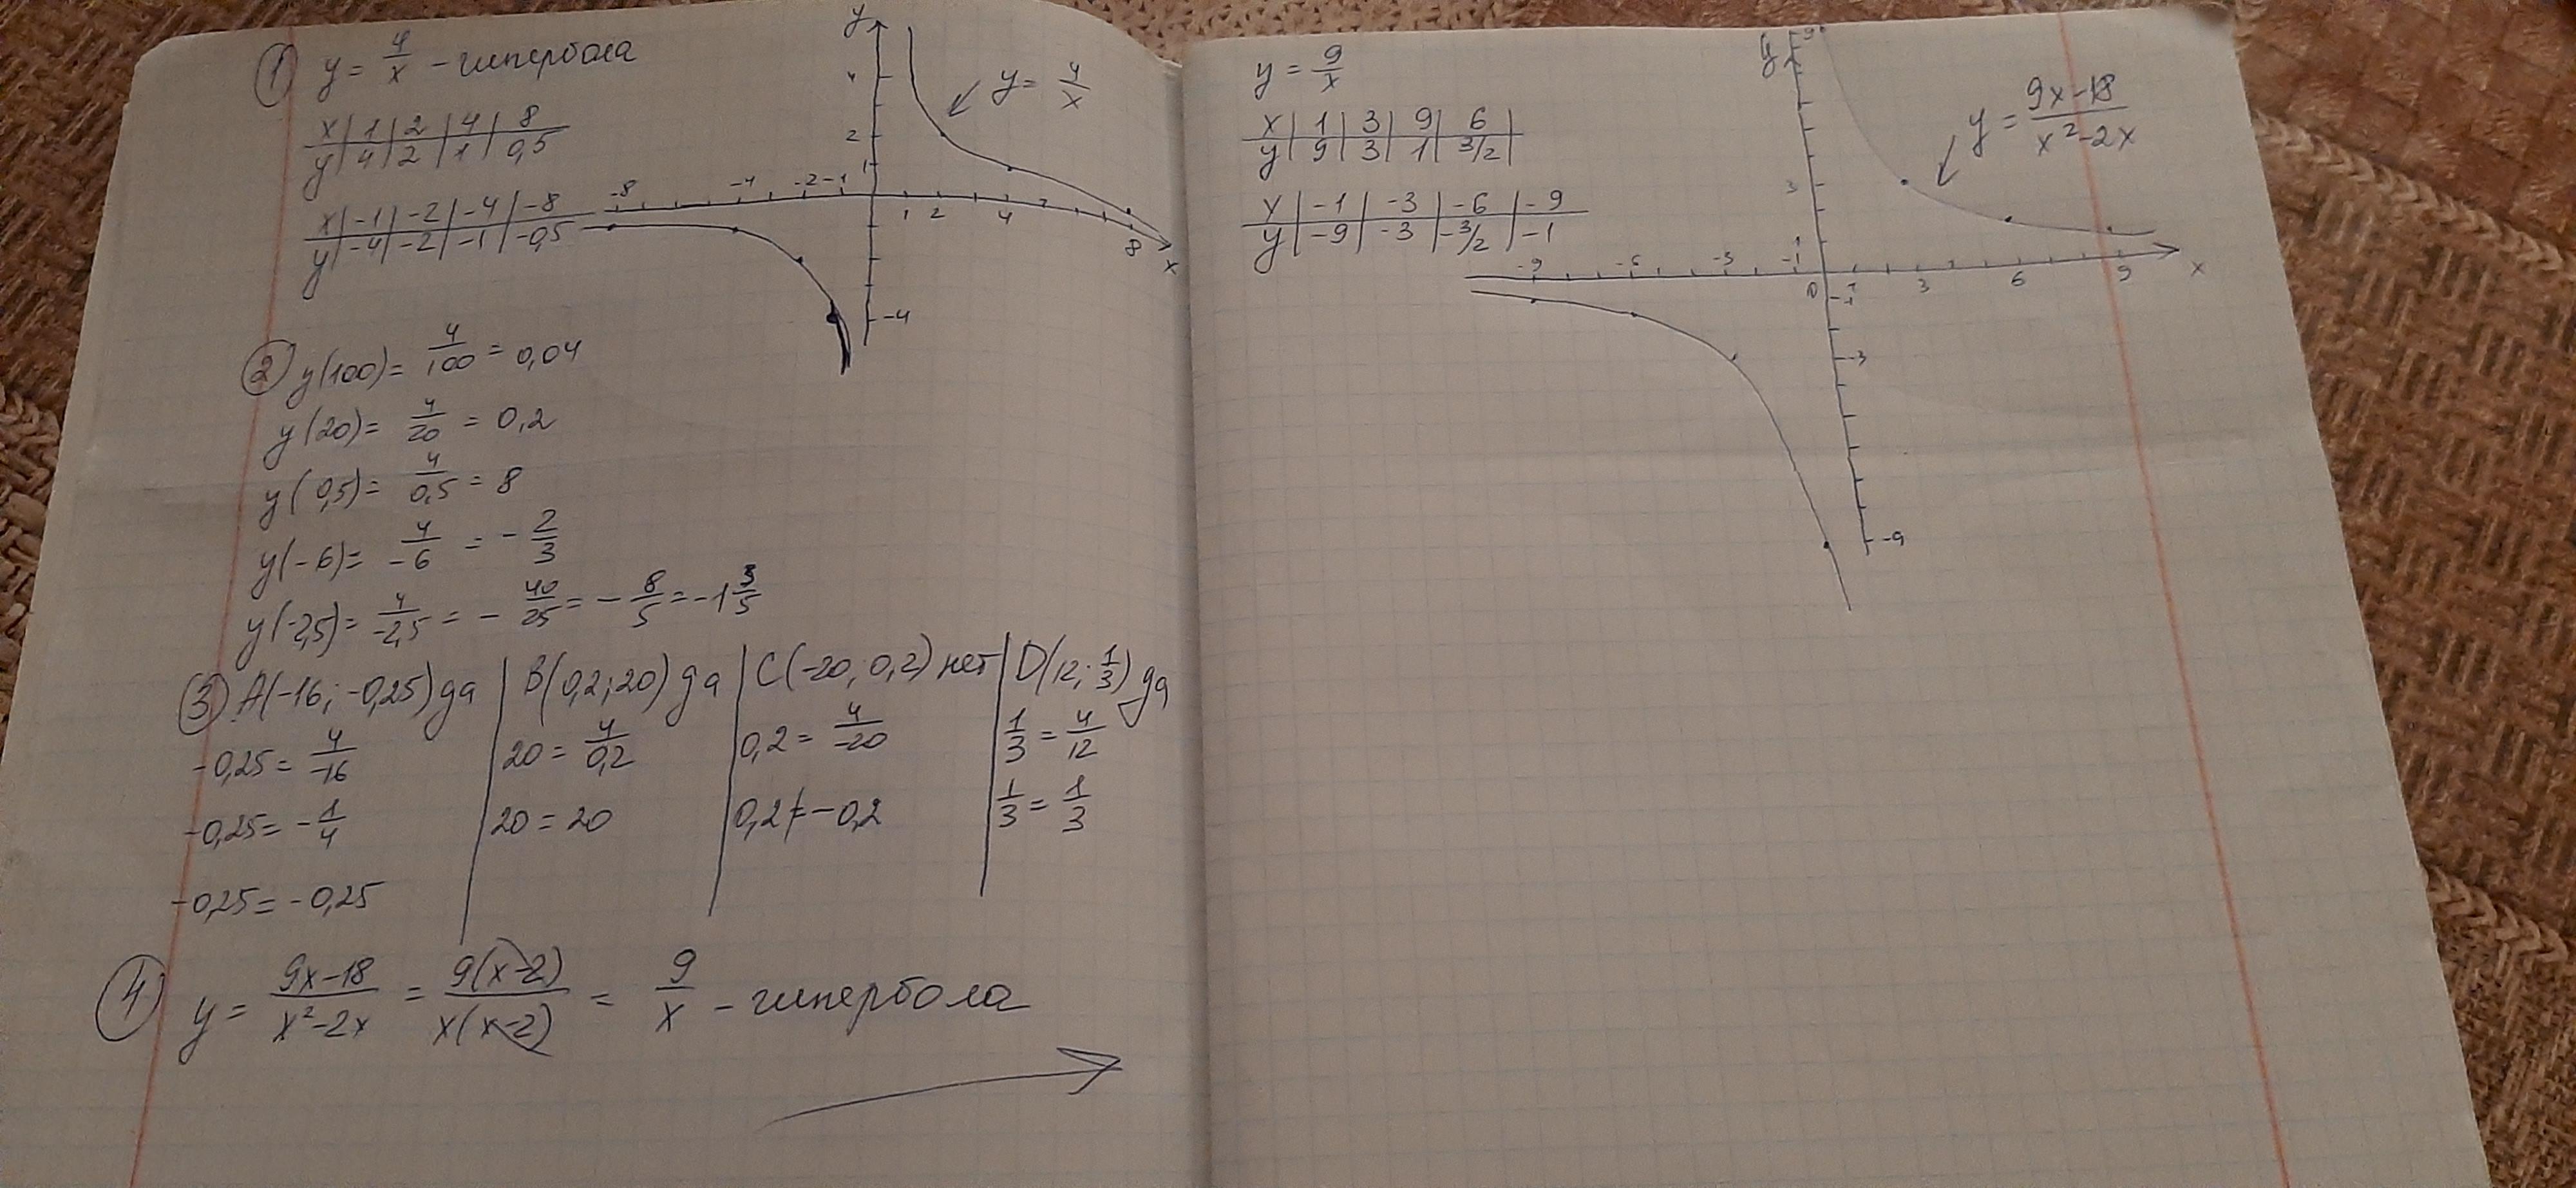 ① y = 4/x - гипербола
x | 1 | 2 | 4 | 8
y | 4 | 2 | 1 | 0,5
x | -1 | -2 | -4 | -8
y | -4 | -2 | -1 | -0,5
y
4
2
1
-8 -4 -2 -1
1 2 4 8
x
-4
y = 4/x
② y(100) = 4/100 = 0,04
y(20) = 4/20 = 0,2
y(0,5) = 4/0,5 = 8
y(-6) = 4/-6 = - 2/3
y(-2,5) = 4/-2,5 = - 40/25 = - 8/5 = -1 3/5
③ A(-16; -0,25) да | B(0,2; 20) да | C(-20; 0,2) нет | D(12; 1/3) да
-0,25 = 4/-16 | 20 = 4/0,2 | 0,2 = 4/-20 | 1/3 = 4/12
-0,25 = - 1/4 | 20 = 20 | 0,2 ≠ -0,2 | 1/3 = 1/3
-0,25 = -0,25
④ y = 9x-18/x²-2x = 9(x-2)/x(x-2) = 9/x - гипербола
y = 9/x
x | 1 | 3 | 9 | 6 |
y | 9 | 3 | 1 | 3/2 |
x | -1 | -3 | -6 | -9
y | -9 | -3 | -3/2 | -1
y
9
3
1
-9 -6 -3 -1
0 1 3 6 9
x
-1
-3
-9
y = 9x-18/x²-2x